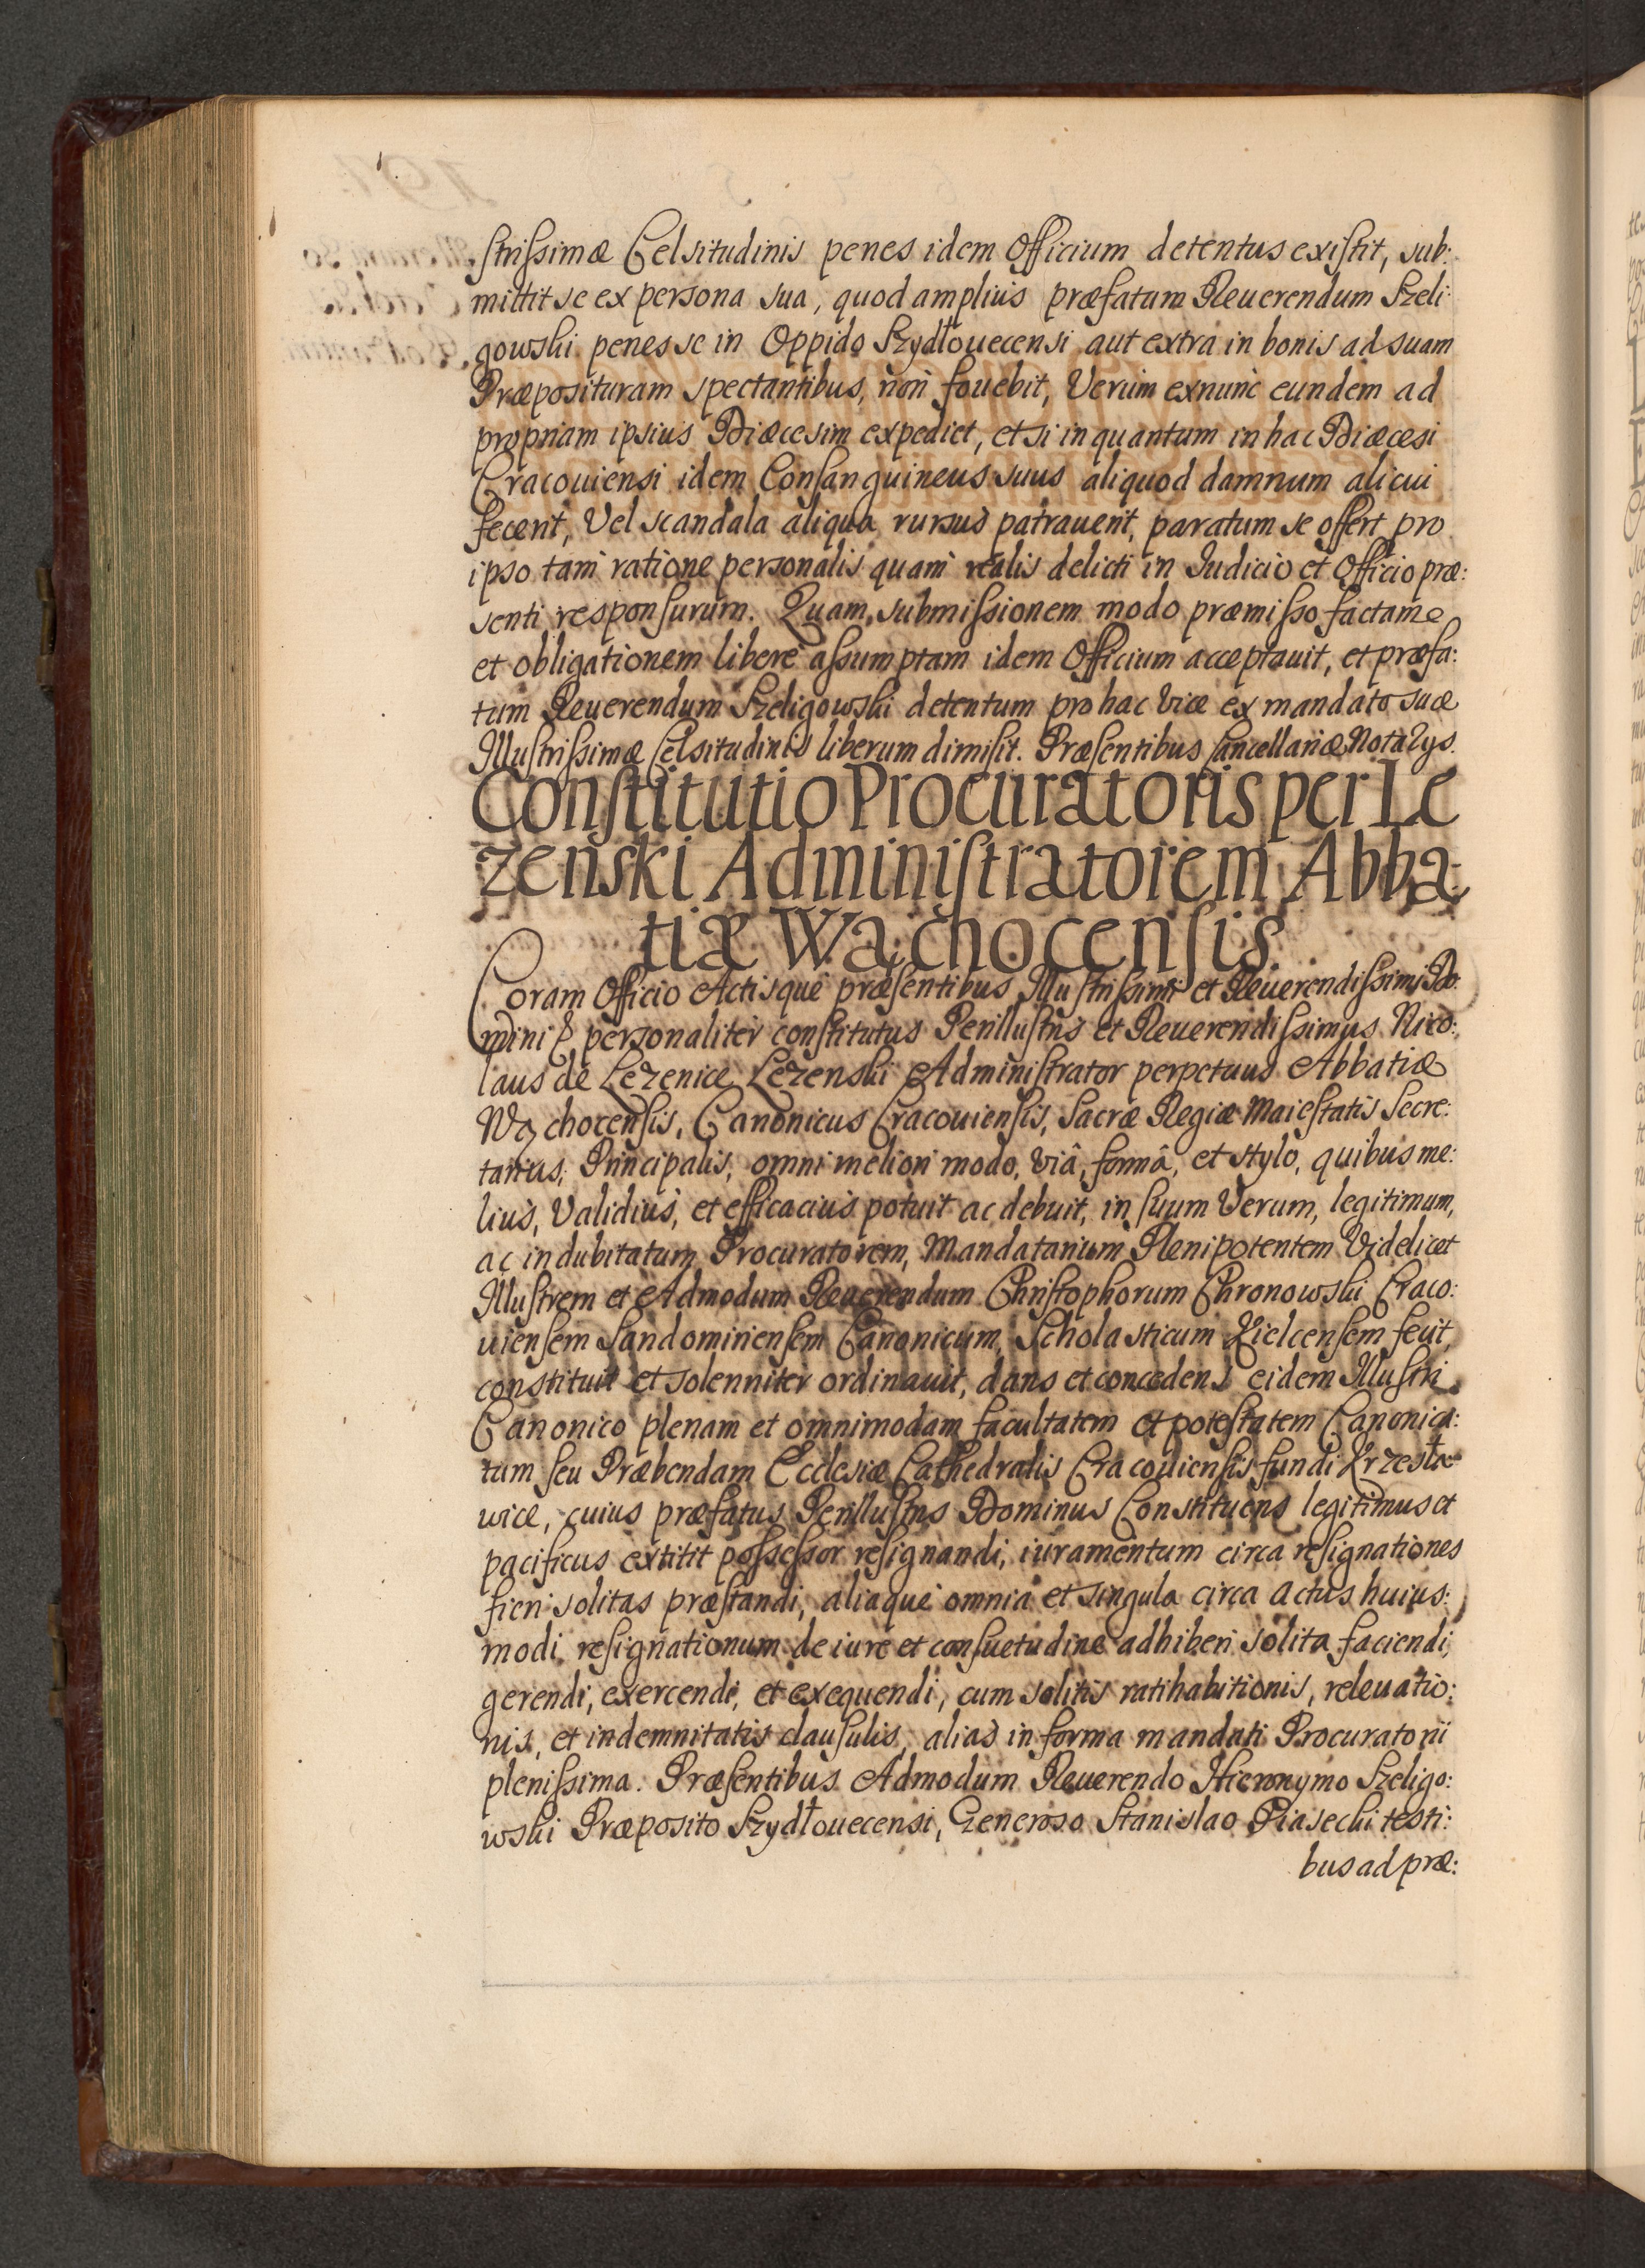 strissimæ Celsitudinis penes idem Officium detentus existit, sub:
mittit se ex persona sua, quod amplius præfatum Reuerendum Szeli:
gowski penes se in Oppido Szydłouecensi aut extra in bonis ad suam
Præposituram spectantibus, non fouebit, Verum exnunc eundem ad
propriam ipsius Diæcesim expediet, et si in quantum in hac Diæcesi
Cracouiensi idem Consanguineus suus aliquod damnum alicui
fecerit, Vel scandala aliqua rursus patrauerit, paratum se offert pro
ipso tam ratione personalis quam realis delicti in Iudicio et Officio præ:
senti responsurum. Quam submissionem modo præmisso factam
et obligationem liberè assumptam idem Officium acceptauit, et præfa:
tum Reuerendum Szeligowski detentum pro hac vice ex mandato suæ
Illustrissimæ Celsitudinis liberum dimisit. Præsentibus Cancellariæ Notarys.
Constitutio Procuratoris per Le
zenski Administratorem Abba:
tiæ Wąchocensis.
Coram Officio Actisque præsentibus Illustrissimi et Reuerendissimi Do:
mini & personaliter constitutus Perillustris et Reuerendissimus Nico:
laus de Lezenice Lezenski Administrator perpetuus Abbatiæ
Wąchocensis, Canonicus Cracouiensis, Sacræ Regiæ Maiestatis Secre:
tarius, Principalis, omni meliori modo, viâ, formâ, et stylo, quibus me:
lius, Validius, et efficacius potuit ac debuit, in suum Verum, legitimum,
ac indubitatum Procuratorem, Mandatarium Plenipotentem Videlicet
Illustrem et Admodum Reuerendum Christophorum Chronowski Craco:
uiensem Sandomiriensem Canonicum, Scholasticum Kielcensem fecit,
constituit et solenniter ordinauit, dans et concedens eidem Illustri
Canonico plenam et omnimodam facultatem et potestatem Canonica:
tum seu Præbendam Ecclesiæ Cathedralis Cracouiensis fundi Krzesła
wice, cuius præfatus Perillustris Dominus Constituens legitimus et
pacificus extitit possessor resignandi, iuramentum circa resignationes
fieri solitas præstandi, aliaque omnia et singula circa actus huius:
modi resignationum de iure et consuetudine adhiberi solita faciendi,
gerendi, exercendi, et exequendi, cum solitis ratihabitionis, releuatio:
nis, et indemnitatis clausulis, alias in forma mandati Procuratorii
plenissima. Præsentibus Admodum Reuerendo Hieronymo Szeligo:
wski Præposito Szydłouecensi, Generoso Stanislao Piasecki testi:
bus ad præ: